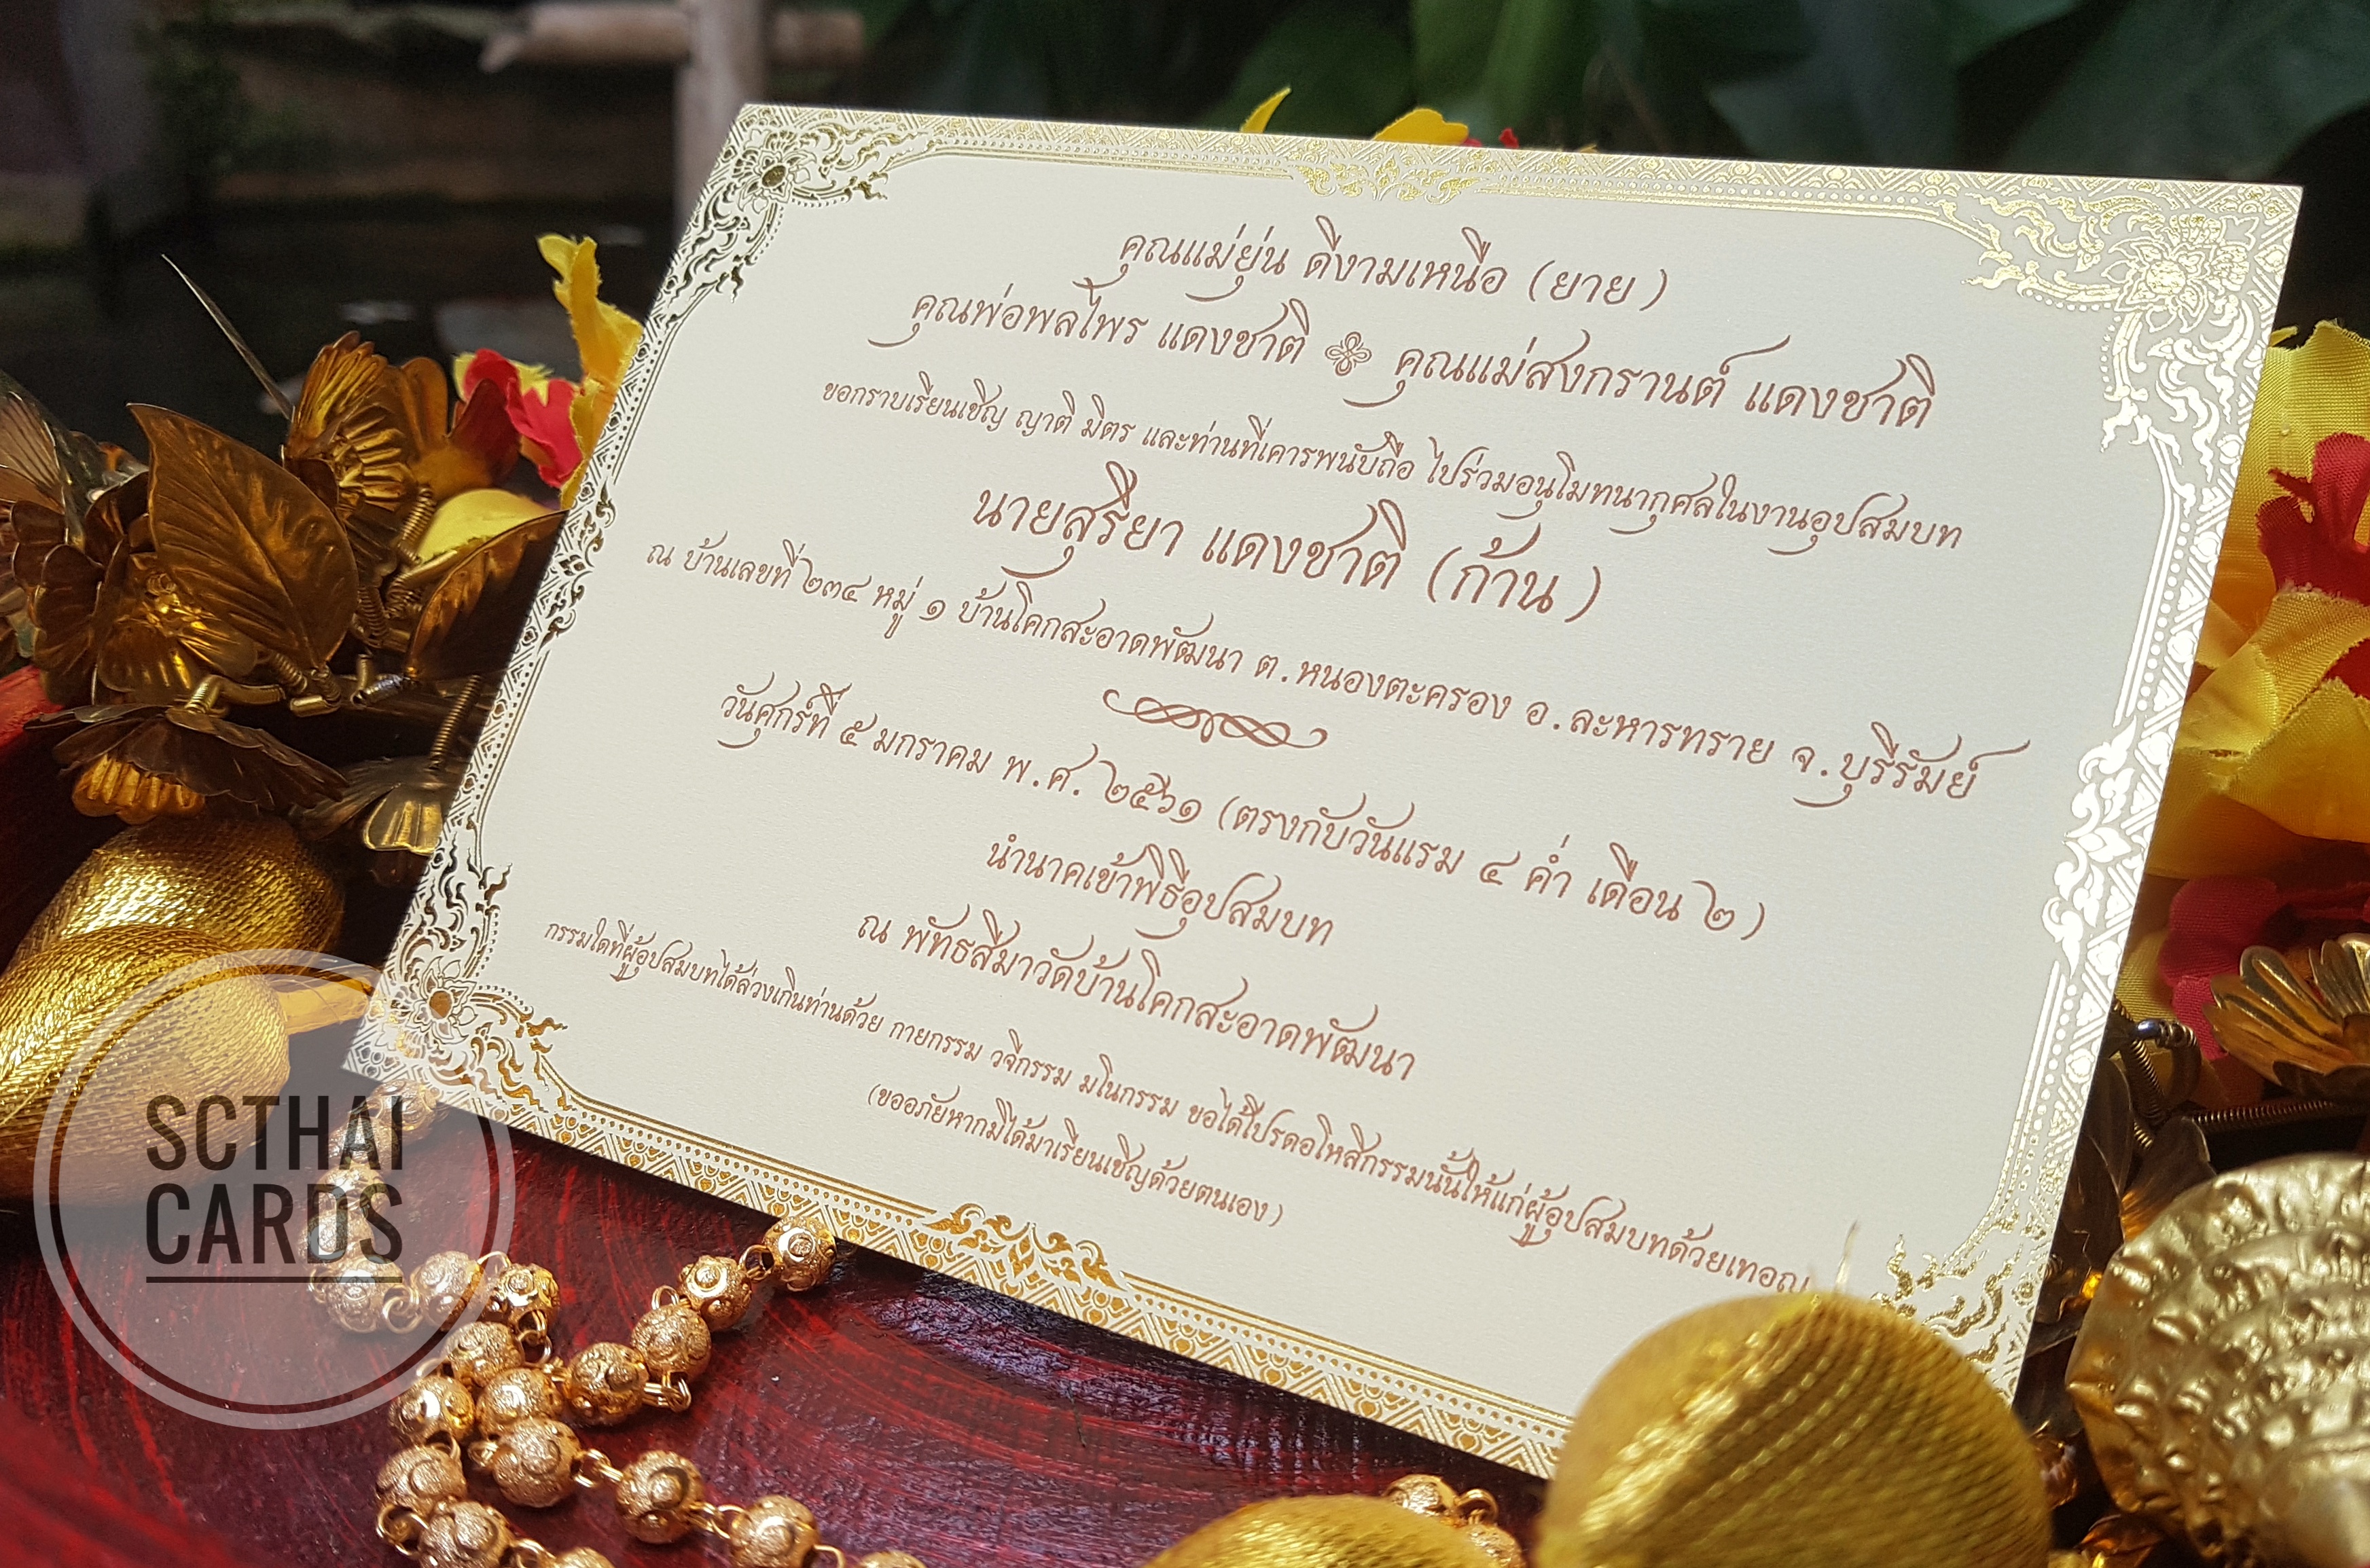 คุณแม่ยุ่น ดีงามเหนือ (ยาย)
คุณพ่อพลไพร แดงชาติ คุณแม่สงกรานต์ แดงชาติ
ขอกราบเรียนเชิญ ญาติ มิตร และท่านที่เคารพนับถือ ไปร่วมอนุโมทนากุศลในงานอุปสมบท
นายสุริยา แดงชาติ (ก้าน)
ณ บ้านเลขที่ ๒๓๔ หมู่ ๑ บ้านโคกสะอาดพัฒนา ต.หนองตะครอง อ.ละหารทราย จ.บุรีรัมย์
วันศุกร์ที่ ๕ มกราคม พ.ศ. ๒๕๖๑ (ตรงกับวันแรม ๔ ค่ำ เดือน ๒)
นำนาคเข้าพิธีอุปสมบท
ณ พัทธสีมาวัดบ้านโคกสะอาดพัฒนา
กรรมใดที่ผู้อุปสมบทได้ล่วงเกินท่านด้วย กายกรรม วจีกรรม มโนกรรม ขอได้โปรดอโหสิกรรมนั้นให้แก่ผู้อุปสมบทด้วยเทอญ
(ขออภัยหากมิได้มาเรียนเชิญด้วยตนเอง)
SCTHAI
CARDS